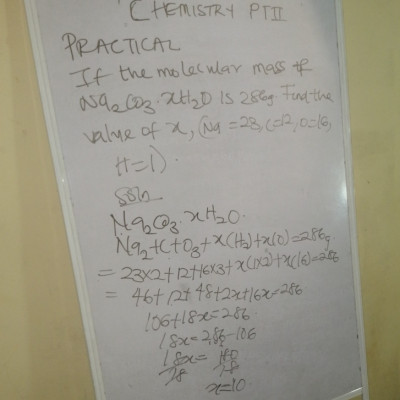 CHEMISTRY PT II
PRACTICAL
If the molecular mass of
Na₂CO₃.xH₂O is 286g. Find the
value of x, (Na = 23, C=12, O=16,
H=1).
Soln
Na₂CO₃.xH₂O.
Na₂+C+O₃+x(H₂)+x(O)=286g
= 23x2+12+16x3+x(1x2)+x(16)=286
= 46+12+48+2x+16x=286
106+18x=286
18x=286-106
18x= 180
18 18
x=10